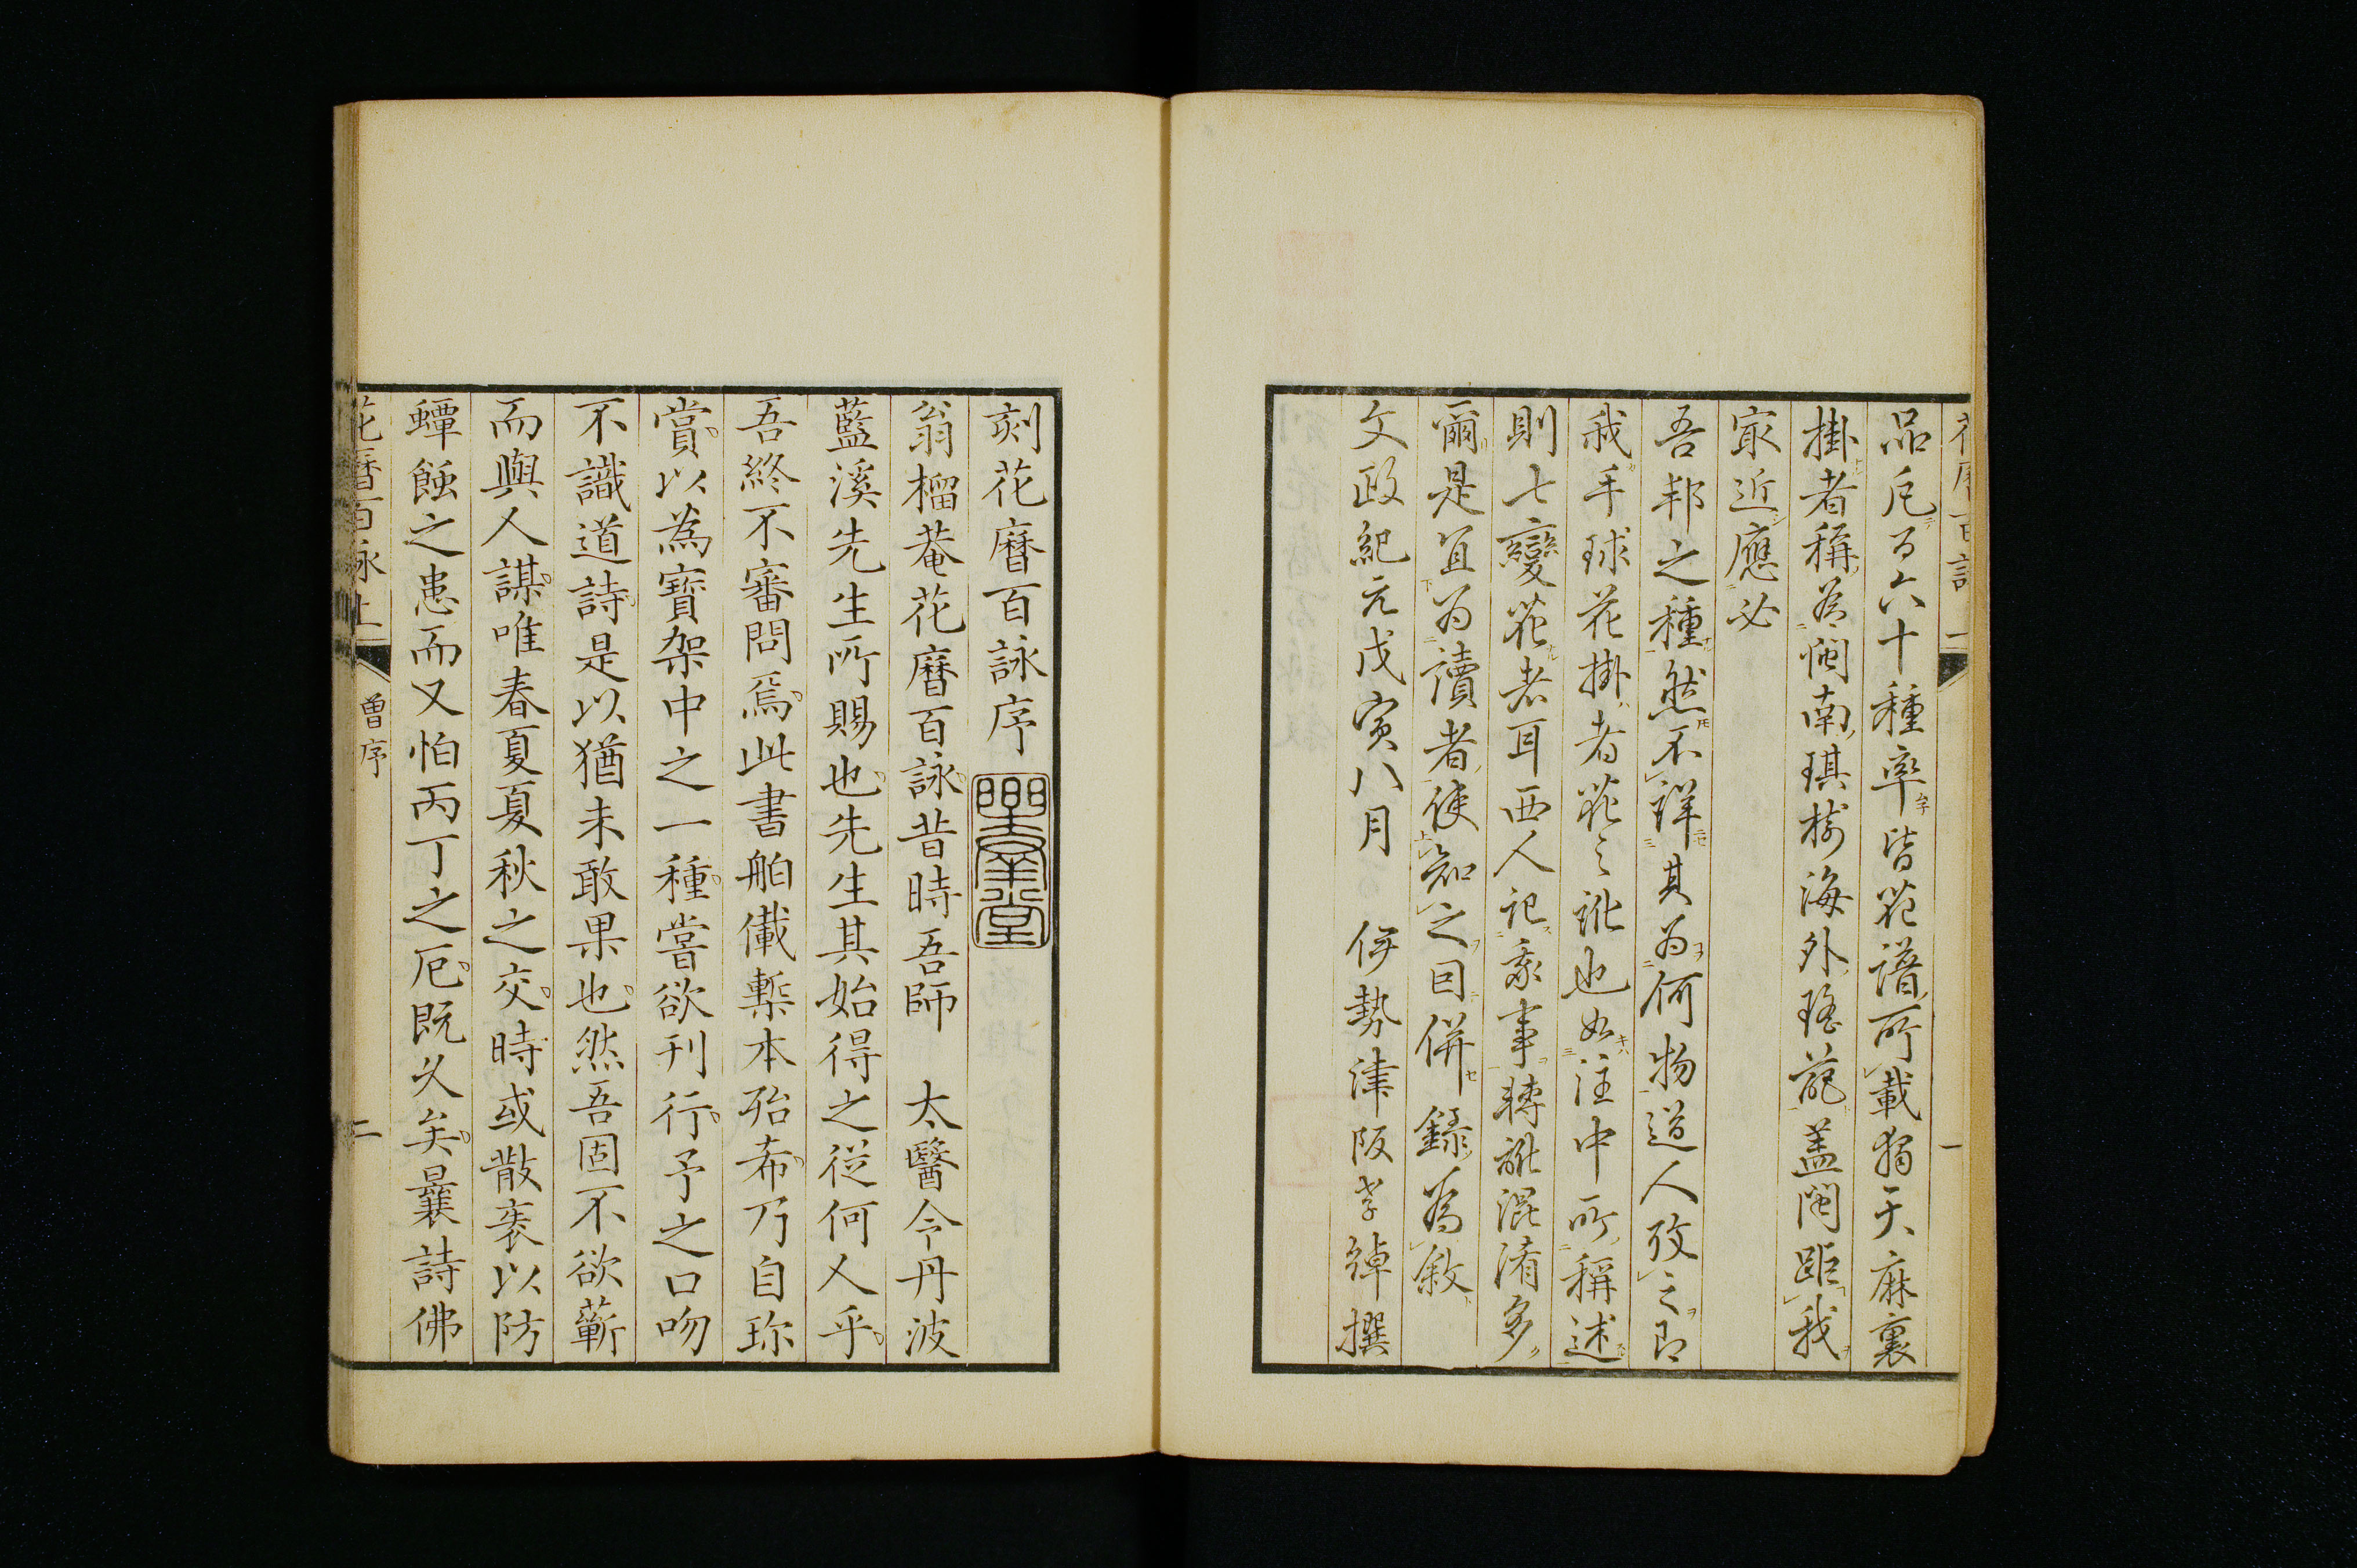 品凡百六十種率皆花譜所載獨天麻裏
掛者稱為閩南琪樹海外瑤葩蓋閩距我
㝡近應必
吾邦之種然不詳其為何物道人攷之即
我手球花掛者花之訛也如注中所稱述
則七變花者耳西人記我事轉訛混淆多
爾是宜為讀者使知之因併錄為敘
文政紀元戊寅八月 伊勢津阪孝綽撰
刻花曆百詠序
翁榴菴花曆百詠昔時吾師 太醫今丹波
藍溪先生所賜也先生其始得之從何人乎
吾終不審問焉此書舶儎槧本殆希乃自珎
賞以為寶架中之一種嘗欲刊行予之口吻
不識道詩是以猶未敢果也然吾固不欲蘄
而與人謀唯春夏夏秋之交時或散袠以防
蟫蝕之患而又怕丙丁之厄既久矣曩詩佛
花曆百詠上 曽序 二